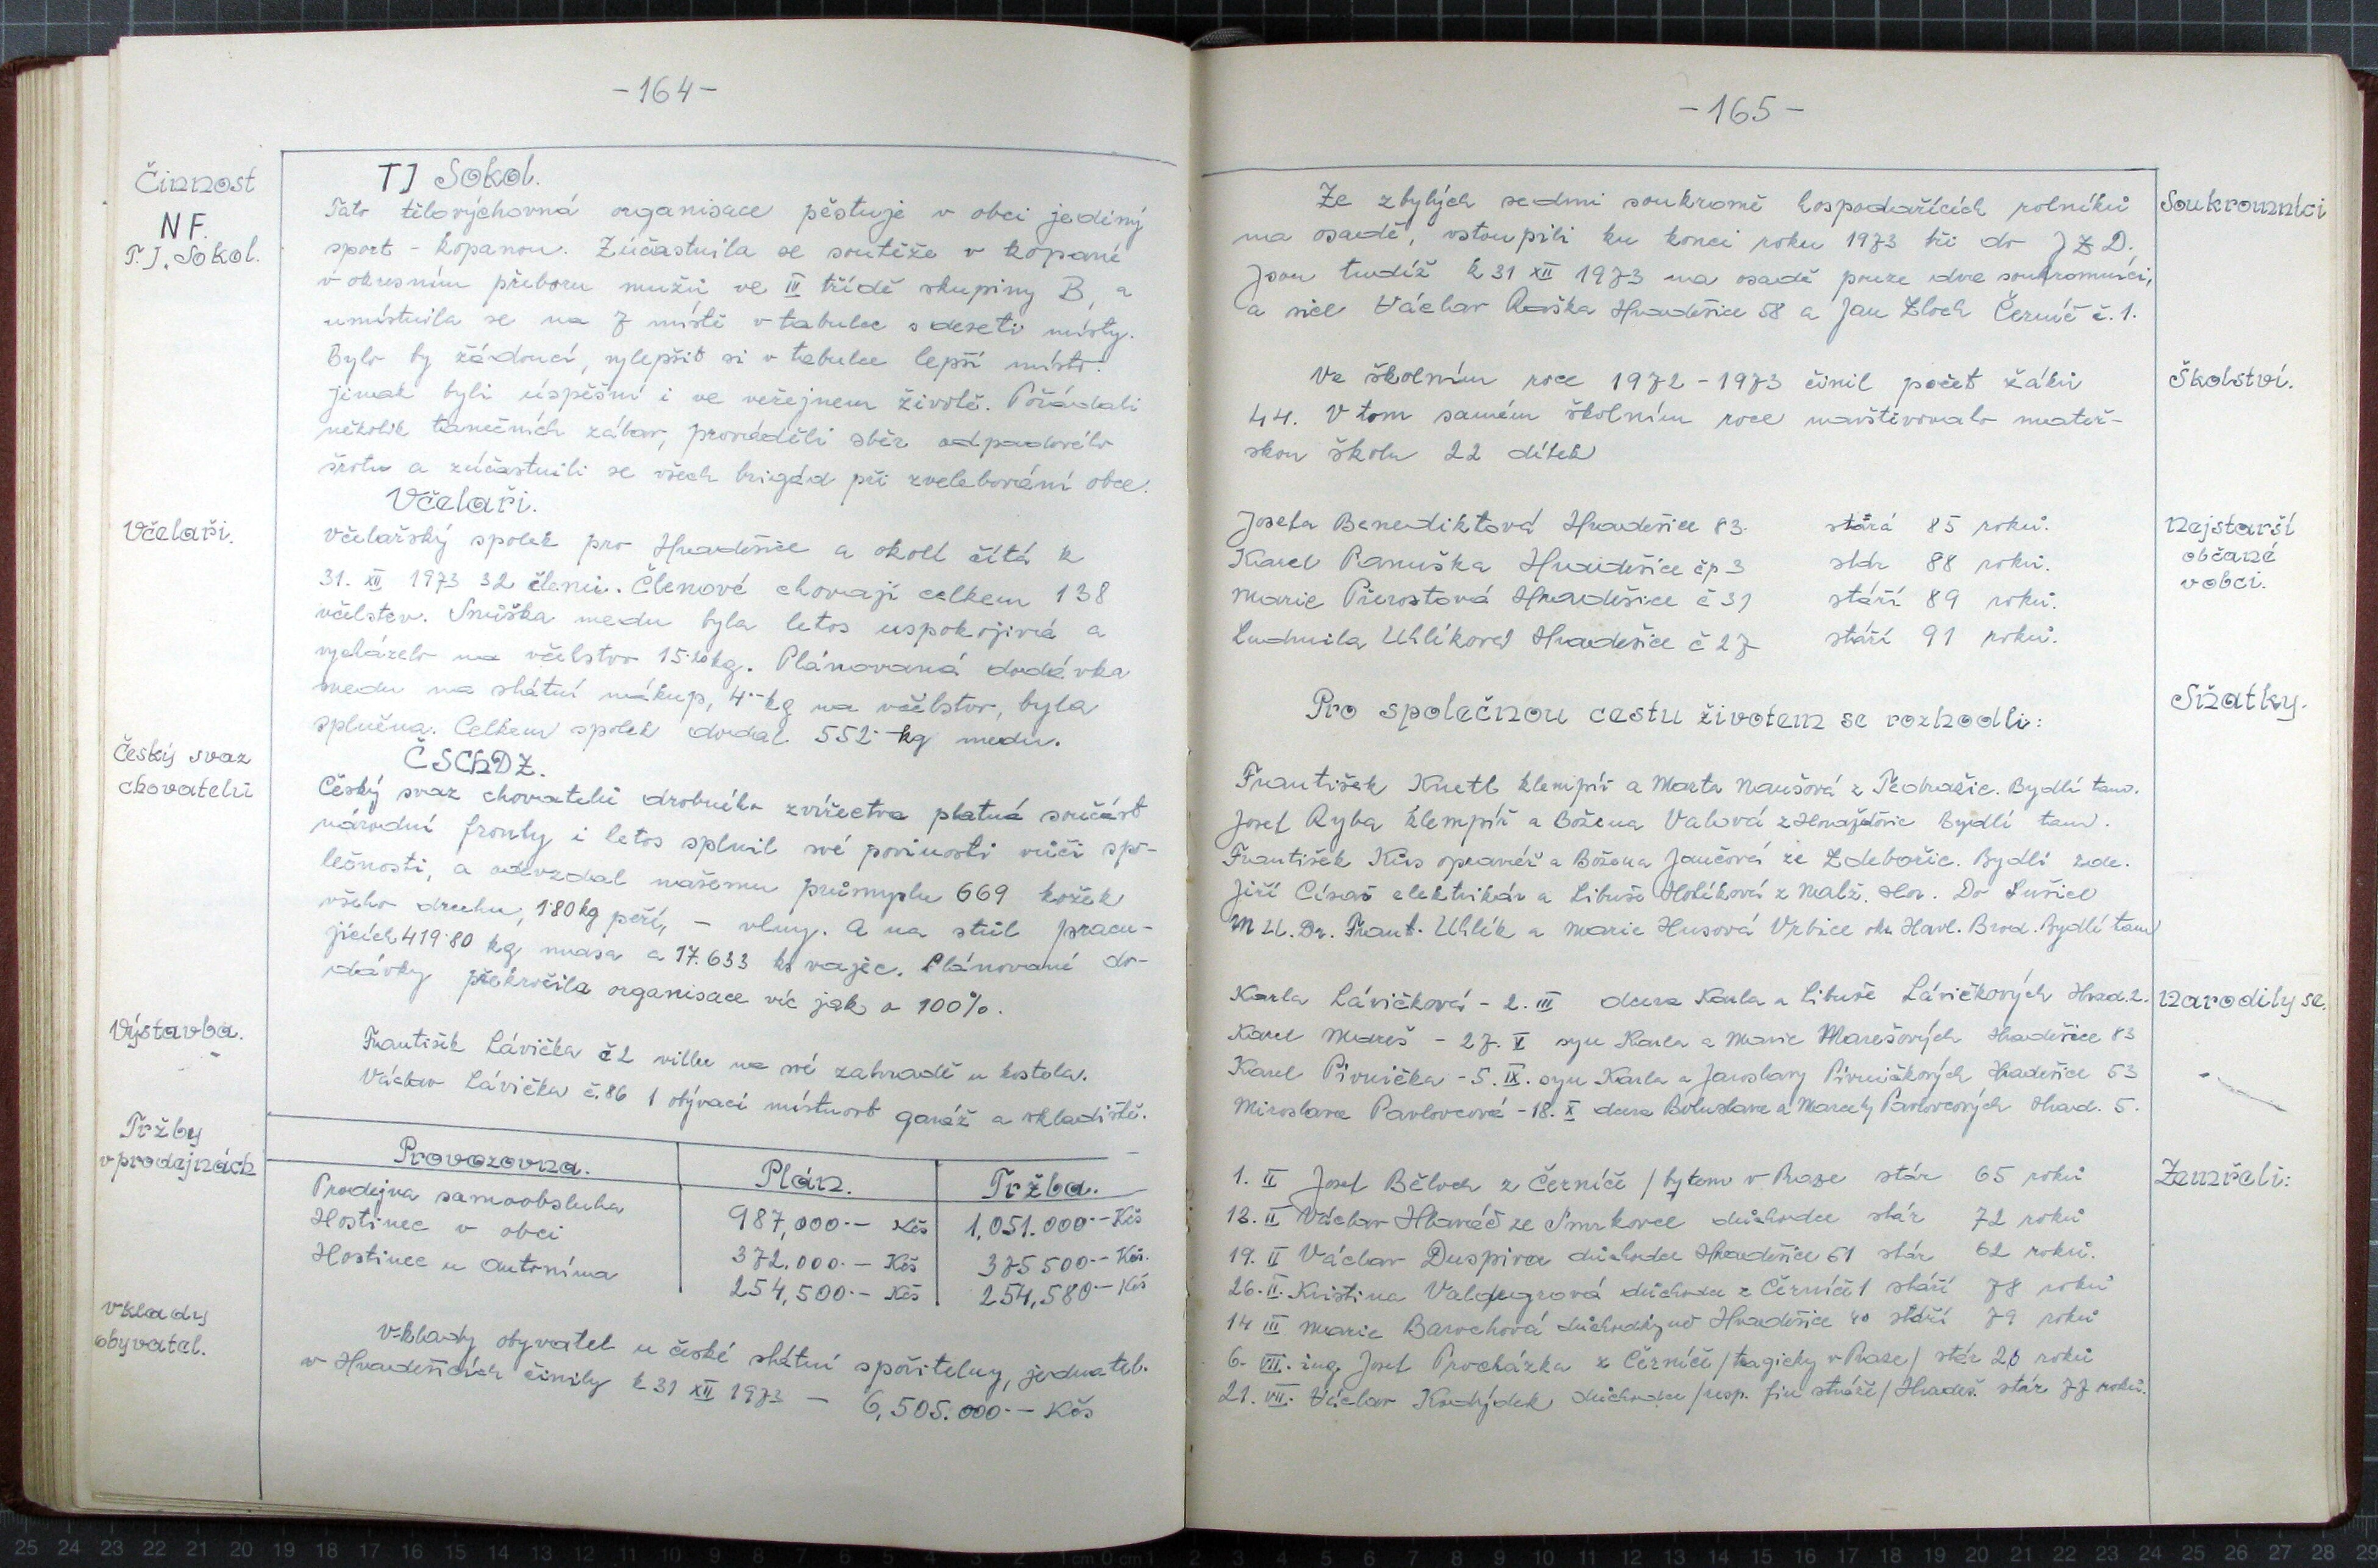 -164-
Činnost
NF.
T.J. Sokol.
TJ Sokol.
Tato tělovýchovná organisace pěstuje v obci jediný
sport - kopanou. Zúčastnila se soutěže v kopané
v okresním přeboru mužů ve IV třídě skupiny B, a
umístnila se na 7 místě v tabulce s deseti místy.
Bylo by žádoucí, vylepšit si v tabulce lepší místo.
Jinak byli úspěšní i ve veřejnem životě. Pořádali
několik tanečních zábav, prováděli sběr odpadového
šrotu a zúčastnili se všech brigád při zvelebování obce.
Včelaři.
Včelaři.
Včelařský spolek pro Hradešice a okolí čítá k
31. XII 1973 32 členů. Členové chovají celkem 138
včelstev. Snůška medu byla letos uspokojivá a
vycházelo na včelstvo 15.20 kg. Plánovaná dodávka
medu na státní nákup, 4.- kg na včelstvo, byla
splněna. Celkem spolek dodal 552.- kg medu.
Český svaz
chovatelů
ČSCHDZ.
Český svaz chovatelů drobného zvířectva platná součást
národní fronty i letos splnil své povinosti vůči spo-
lečnosti, a odevzdal našemu průmyslu 669 kožek
všeho druhu, 1.80 kg peří, - vlny. A na stůl pracu-
jících 419.80 kg masa a 17.633 ks vajec. Plánované do-
dávky překročila organisace víc jak o 100%.
Výstavba.
František Lávička č2 villu na své zahradě u kostela.
Václav Lávička č.86 1 obývací místnost garáž a skladiště.
Tržby
v prodejnách
Provozovna. Plán. Tržba.
Prodejna samoobsluha 987,000.- Kčs 1,051.000.- Kčs
Hostinec v obci 372.000.- Kčs 375500.- Kčs.
Hostinec u Antonína 254,500.- Kčs 254,580.- Kčs
Vklady
obyvatel.
Vklady obyvatel u české státní spořitelny, jednatel.
v Hradešicích činily k 31 XII 1973 - 6,505.000.- Kčs
-165-
Soukromníci
Ze zbylých sedmi soukromě hospodařících rolníků
na osadě, vstoupili ku konci roku 1973 tři do JZD.
Jsou tudíž k 31 XII 1973 na osadě pouze dva soukromníci,
a sice Václav Raška Hradešice 58 a Jan Zloch Černíč č.1.
Školství.
Ve školním roce 1972-1973 činil počet žáků
44. V tom samém školním roce navštěvovalo mateř-
skou školu 22 dítek
Nejstarší
občané
v obci.
Josefa Benediktová Hradešice 83. stará 85 roků.
Karel Panuška Hradešice čp 3 stár 88 roků.
Marie Přerostová Hradešice č 31 stáří 89 roků.
Ludmila Uhlíková Hradešice č 27 stáří 91 roků.
Sňatky.
Pro společnou cestu životem se rozhodli:
František Knetl klempíř a Marta Naušová z Předražic. Bydlí tam.
Josef Ryba klempíř a Božena Valová z Bydlí tam.
František Kus opravář a Božena Jančová ze Zdebořic. Bydlí zde.
Jiří Císař elektrikář a Libuše Holíková z Malž. Hor. Do Sušice
MU.Dr. Frant. Uhlík a Marie Husová Vrbice okr. Havl. Brod. Bydlí tam
Narodily se.
Karla Lávičková - 2. III dcera Karla a Libuše Lávičkových Hrad.2.
Karel Mareš - 27. V syn Karla a Marie Marešových Hradešice 83
Karel Pivnička - 5. IX. syn Karla a Jaroslavy Pivničkových Hradešice 53
Miroslava Pavlovcová - 18. X dcera Bohuslava a Marcely Pavlovcových Hrad. 5.
Zemřeli:
1. II Josef Běloch z Černíče / bytem v Praze stár 65 roků
12. II Václav Hlaváč ze Smrkovce důchodce stár 72 roků
19. II Václav Duspiva důchodce Hradešice 61 stár 62 roků.
26. II. Kristina důchodce z Černíč 1 stáří 78 roků
14 III Marie Barochová důchodkyně Hradešice 40 stáří 79 roků
6. VII. ing. Josef Procházka z Černíče / tragicky v Praze / stár 26 roků
21. VII. Václav Kodýdek důchodce / resp. fin stráže / Hradeš. stár 77 roků.